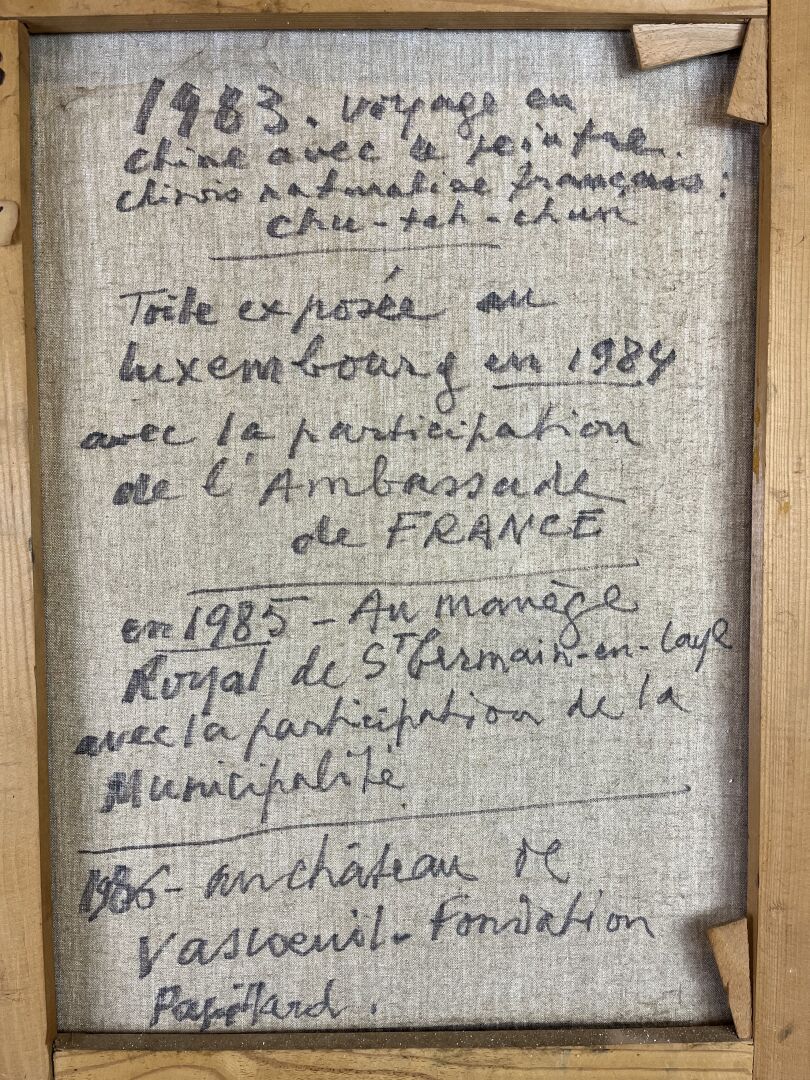 1983. voyage en
chine avec le peintre.
chinois naturalise français :
chu-teh-chun
Toile exposée au
luxembourg en 1984
avec la participation
de l'Ambassade
de FRANCE
en 1985 - Au manège
Royal de ST Germain-en-Laye
avec la participation de la
Municipalité
1986 - au château de
Vascoeuil - Fondation
Papillard.